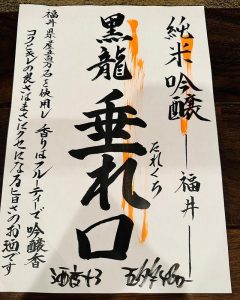 純米吟醸 ― 福井 ―
黒龍 垂れ口
たれくち
福井県産五百万石を使用し 香りはフルーティーで吟醸香
コクとキレの良さはまさにクセになる旨さのお酒です